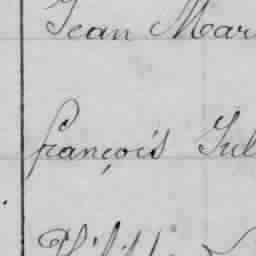 Jean Mar
françois Jul